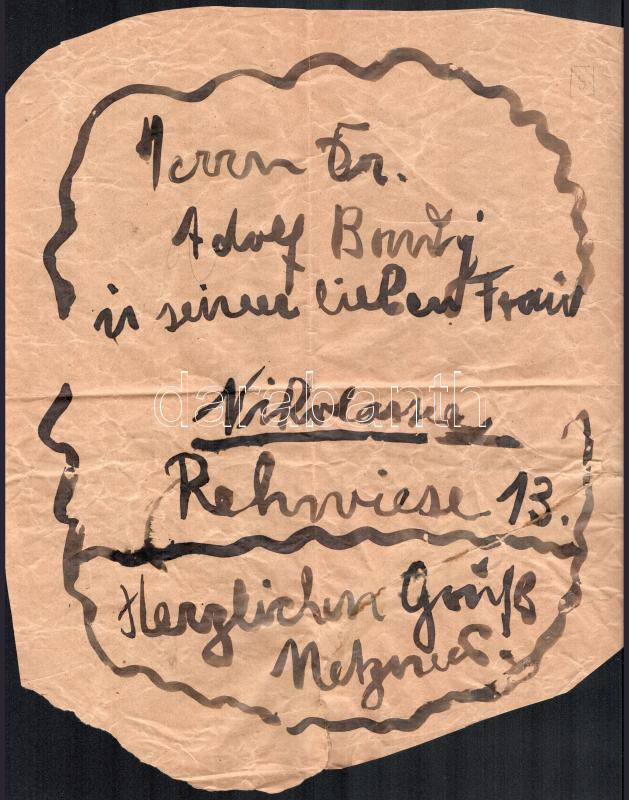 Herrn Dr.
Adolf Bondy
u seiner lieben Frau
Nikolassee
Rehwiese 13.
Herzlichen Gruß
darabanth
5